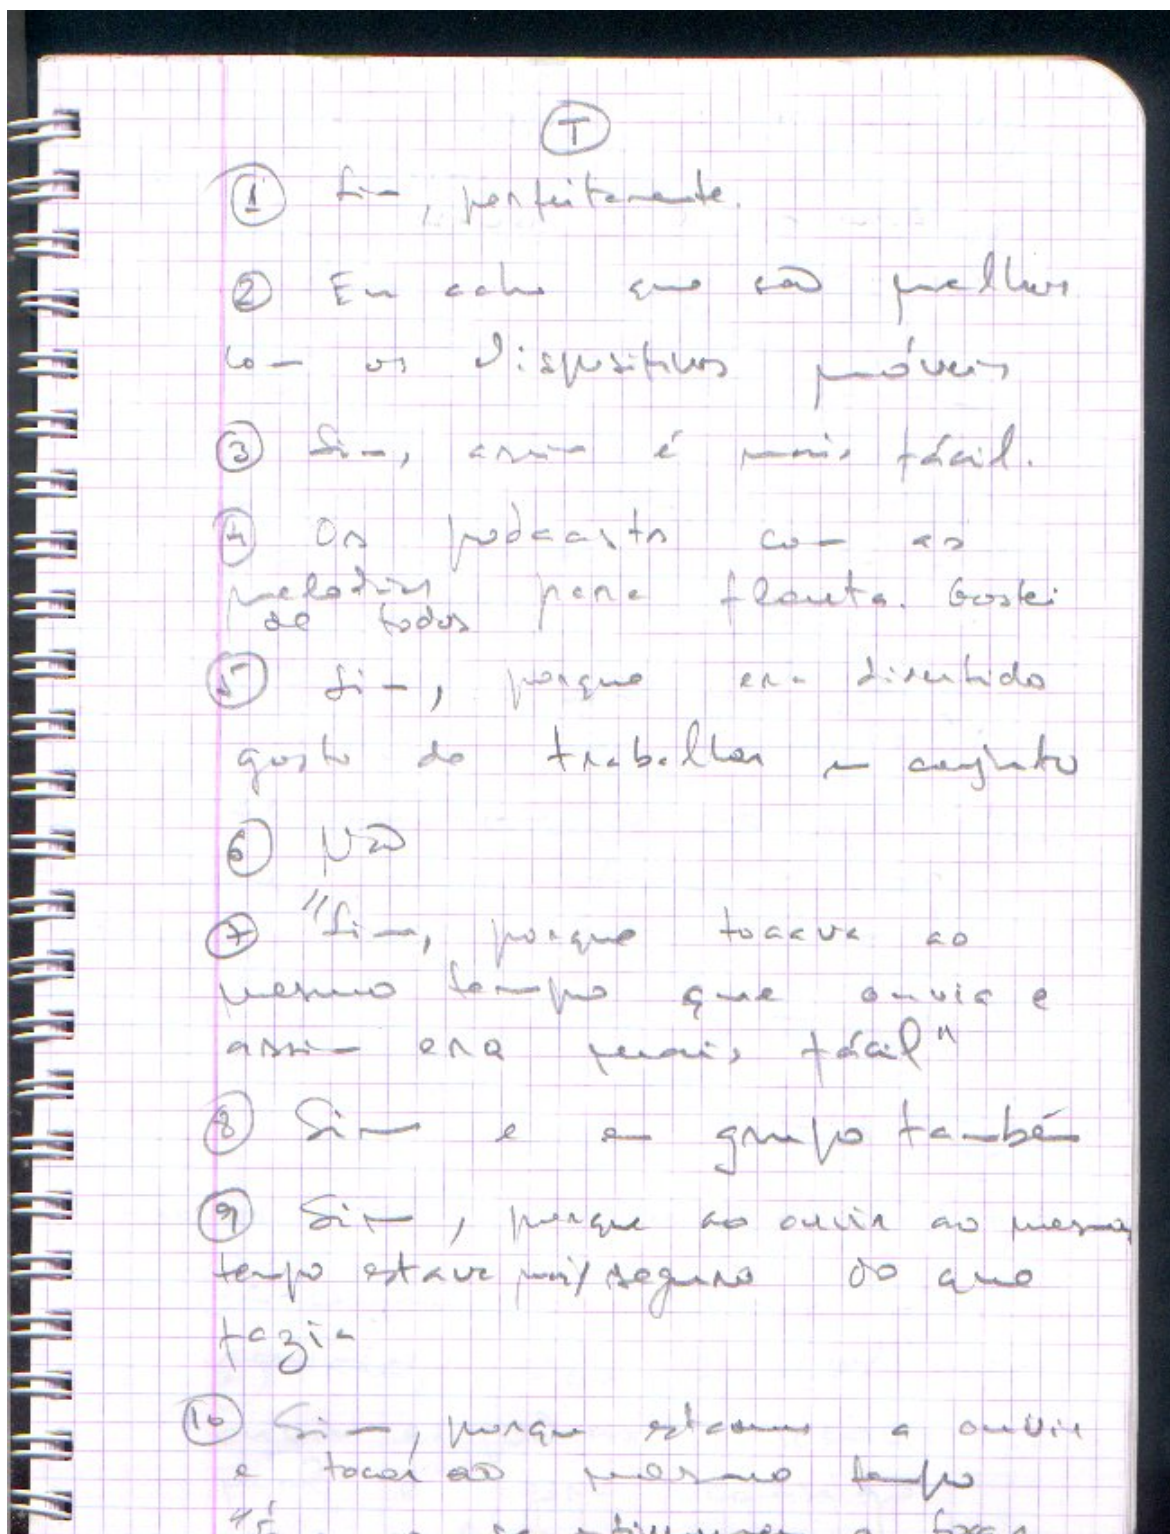 T
1 Sim, perfeitamente.
2 Eu acho que são melhores
com os dispositivos móveis
3 Sim, assim é mais fácil.
4 Os podcasts com as
melodias para flauta. Gostei
de todos
5 Sim, porque era divertido
gosto de trabalhar em conjunto
6 Não
7 "Sim, porque tocava ao
mesmo tempo que ouvia e
assim era mais fácil"
8 Sim e em grupo também
9 Sim, porque ao ouvir ao mesmo
tempo estava mais seguro do que
fazia
10 Sim, porque estamos a ouvir
e tocar ao mesmo tempo